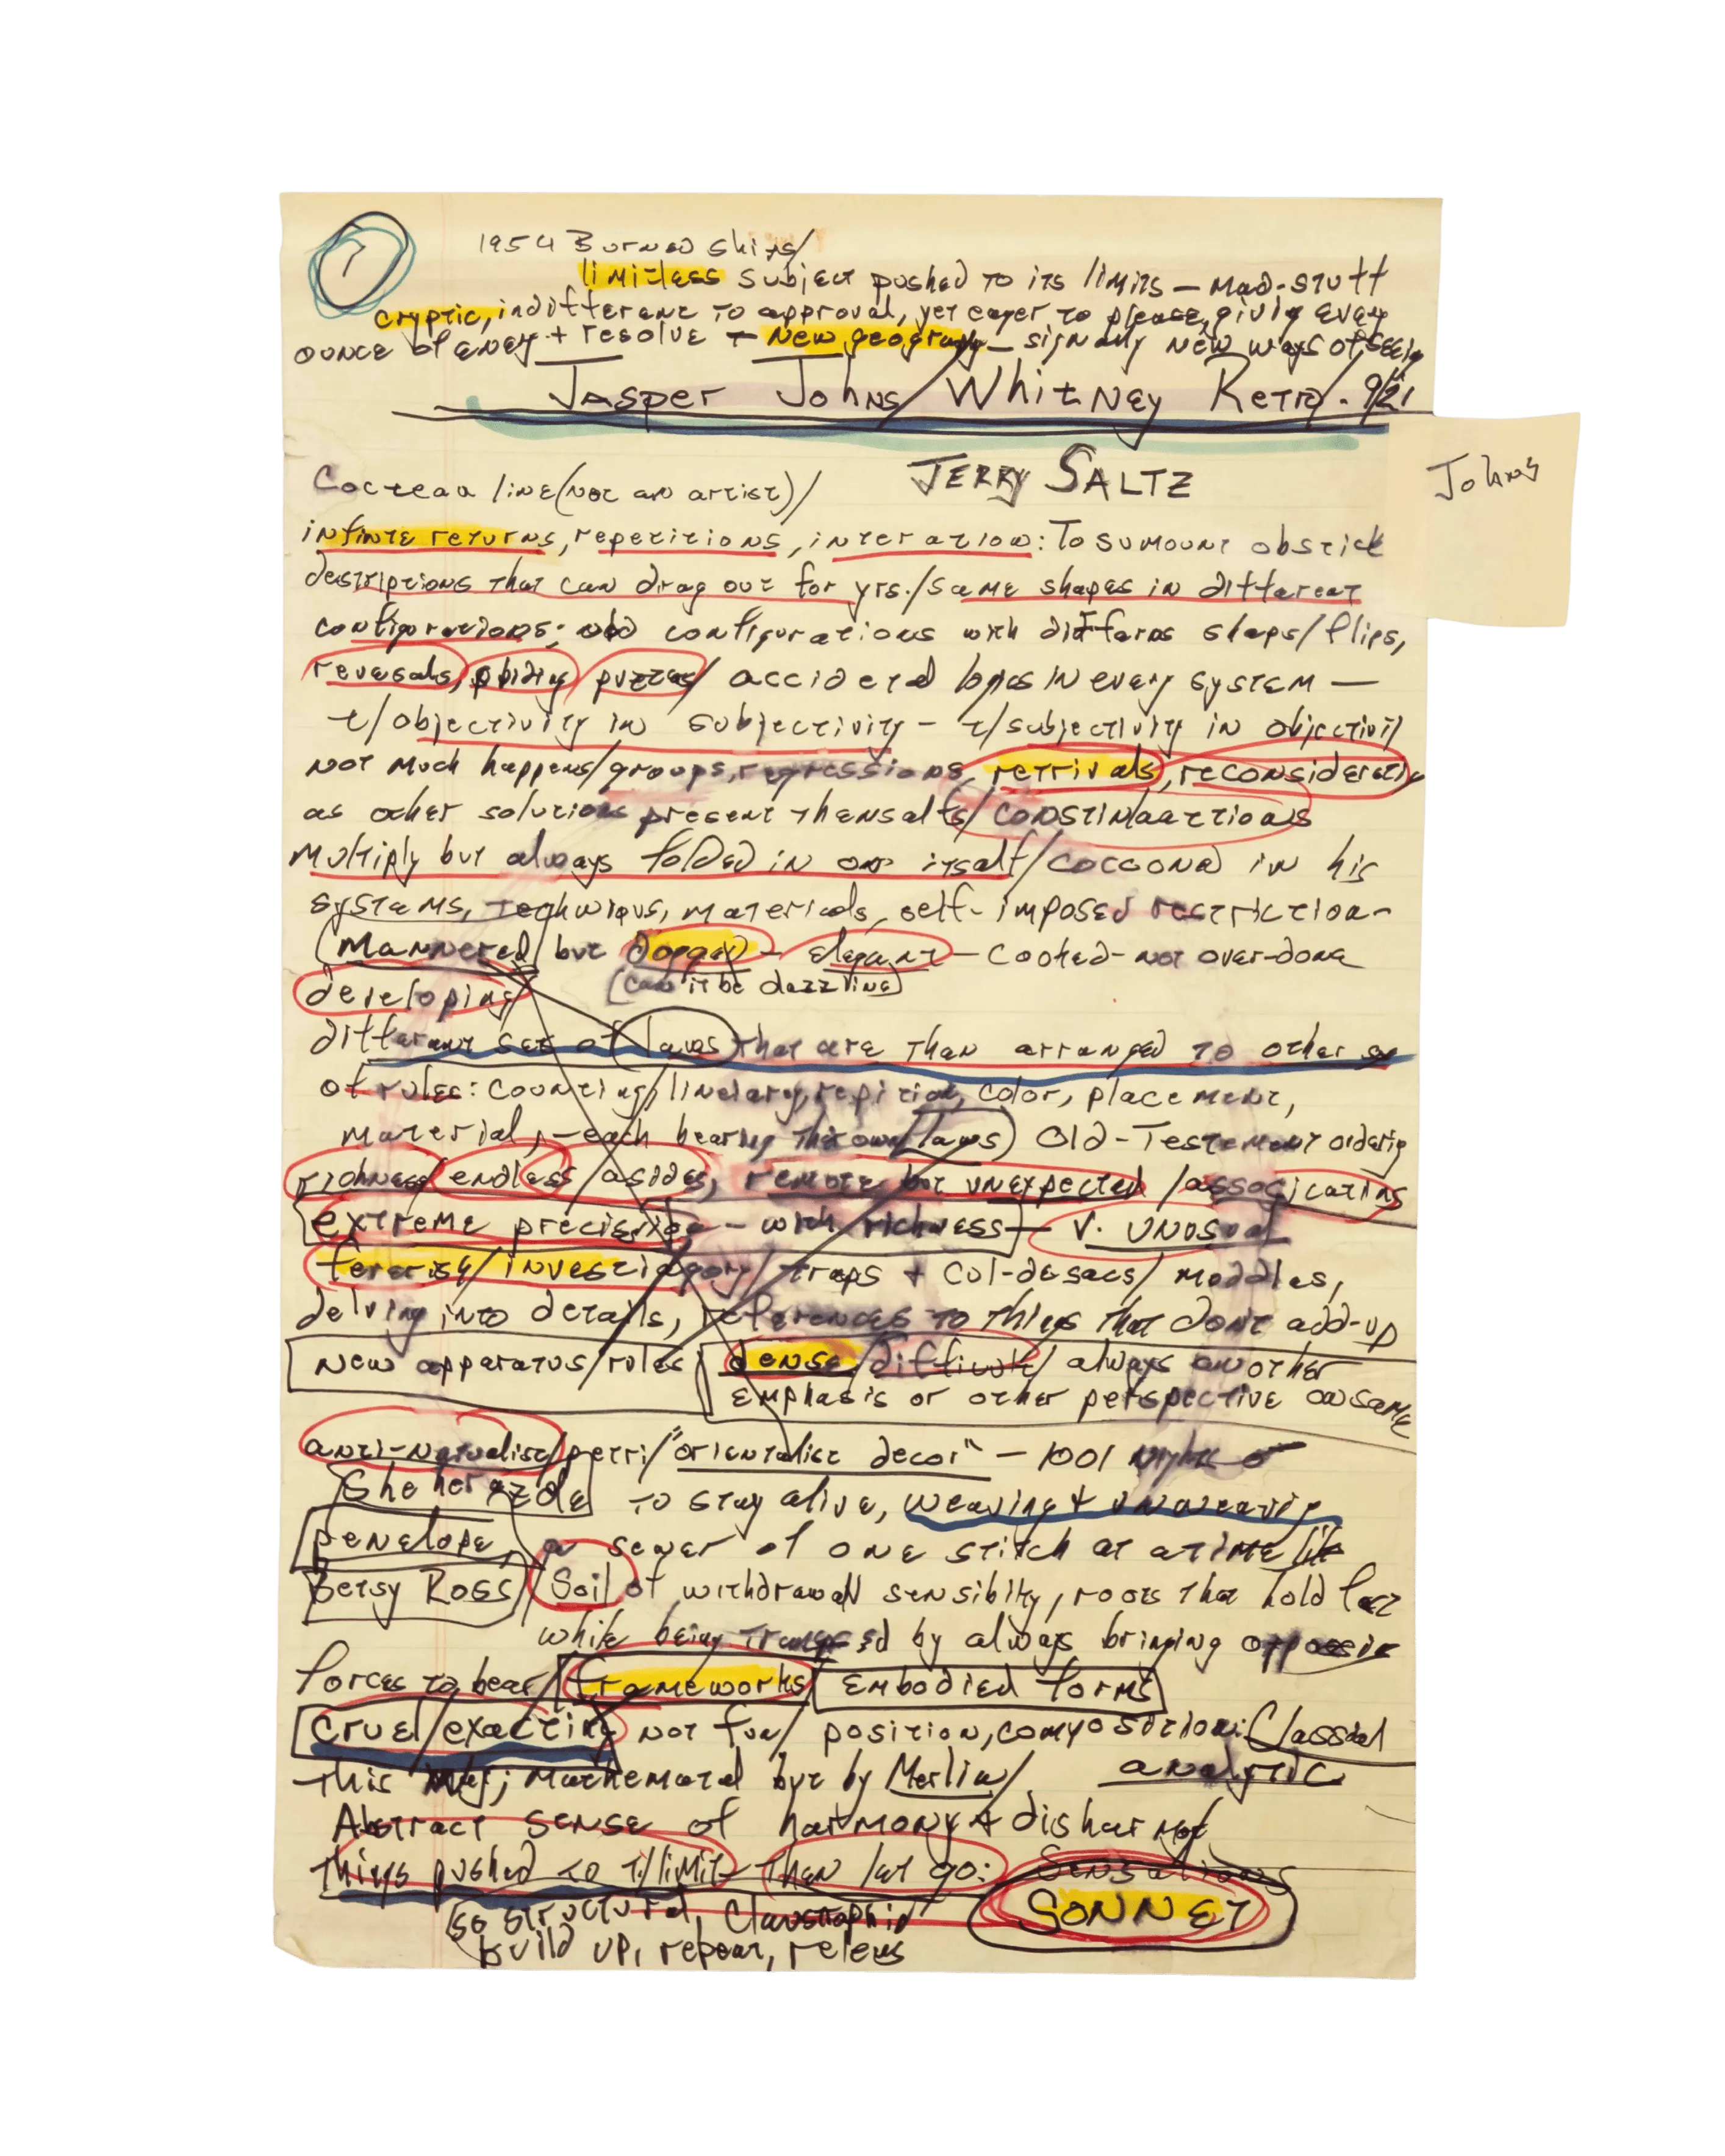 1954 Burned ships/
limitless subject pushed to its limits — mad-stuff
cryptic, indifferent to approval, yet eager to please, giving every
ounce of enegy + resolve + new geography — signaling new ways of seeing
Jasper Johns/Whitney Retro. 9/21
Johns
JERRY SALTZ
Cocteau line (not an artist)/
infinte returns, repetitions, interation: To sumount
descriptions that can drag out for yrs./same shapes in different
configurations; configurations with shaps/flips,
reversals, puzzles/ in every system —
t/objectivity in subjectivity — t/subjectivity in objectivity
not much happens/groups, regressions, retrivals, reconsideration
as other solutions present themsalfs/
multiply but always folded in on itsalf/cocooned in his
systems, techniqus, materials, self-imposed restriction-
(mannered but — elegant — cooked — not over-done
developing (can it be dazzling)
different set of laws that are than arranged to other
of rules: counting, color, placement,
material, — each bearing their own laws) Old-Testement ordering
richness/endless/asides, remote but unexpected /
extreme precision — with richness — v. unusual
traps + cul-desacs/ moddles,
delving into details, references to things that don't add-up
new apparatus/rules dense/difficult/ always another
emphasis or other perspective on same
anti-naturalist/ "orientalist decor" — 1001 nights
Sheherazde to stay alive, weaving + unweaving
Penelope, a sewer of one stitch at a time like
Betsy Ross/ Soil of withdrawall sensibilty, roots that hold fast
while being by always bringing
forces to bear/ frameworks/ Embodied forms
Cruel/exacting not fun/ position, composition: Classical
This by Merlin/ analytic
Abstract sense of harmony +
things pushed to t/limit — then let go: Sensations
SONNET
so structured,
build up, repeat,